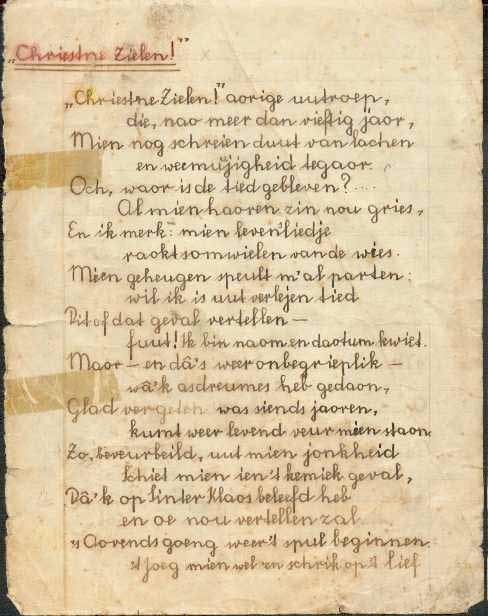 „Chriestne Zielen!”
„Chriestne Zielen!” aorige uutroep,
die, nao meer dan vieftig jaor,
Mien nog schreien duut van lachen
en weemujigheid tegaor.
Och, waor is de tied gebleven? ....
Al mien haoren zin nou gries,
En ik merk: mien leven'liedje
raokt somwielen van de wies.
Mien geheugen speult m'al parten:
wil ik is uut verlejen tied
Dit of dat geval vertellen —
fuut! Ik bin naom en daotum kwiet.
Maor — en dâ's weer onbegrieplik —
wâ'k as dreumes heb gedaon,
Glad vergeten was siends jaoren,
kumt weer levend veur mien staon.
Zo, beveurbeild, uut mien jonkheid
schiet mien ien 't kemiek geval,
Dâ'k op Sinter Klaos beleefd heb
en oe nou vertellen zal.
's Aovends goeng weer 't spul beginnen.
't Joeg mien wel en schrik op 't lief